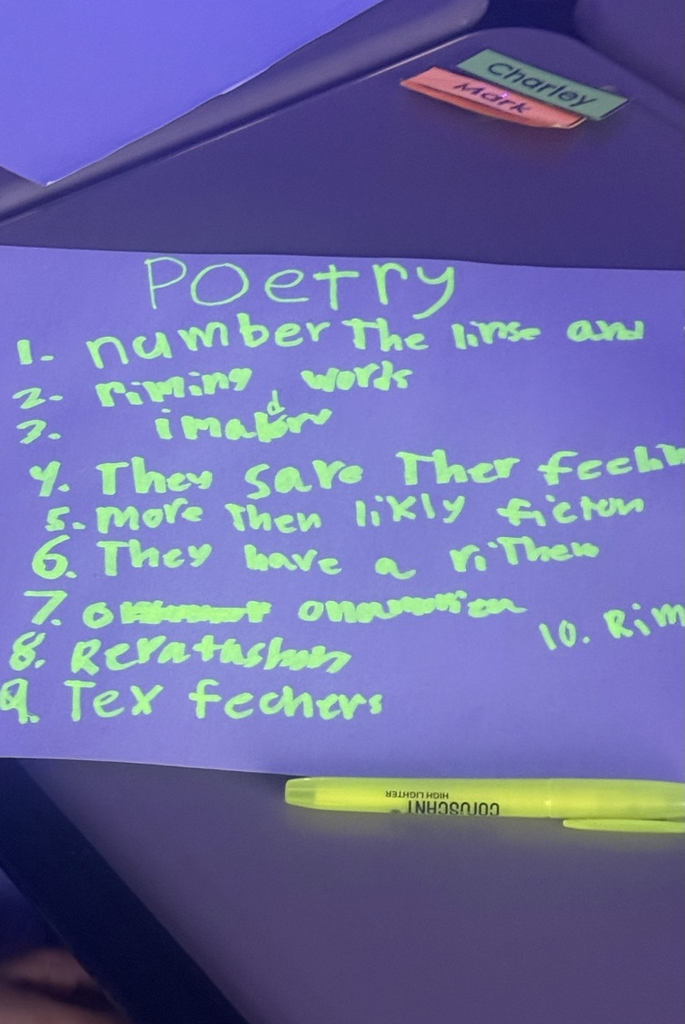 Charley
Mark
Poetry
1. number The linse and
2. riming words
3.
4. They sare Ther feelin
5. More then likly ficton
6. They have a rithem
7.
8.
9. Tex fechers
10. Rim
CORUSCANT
HIGH LIGHTER